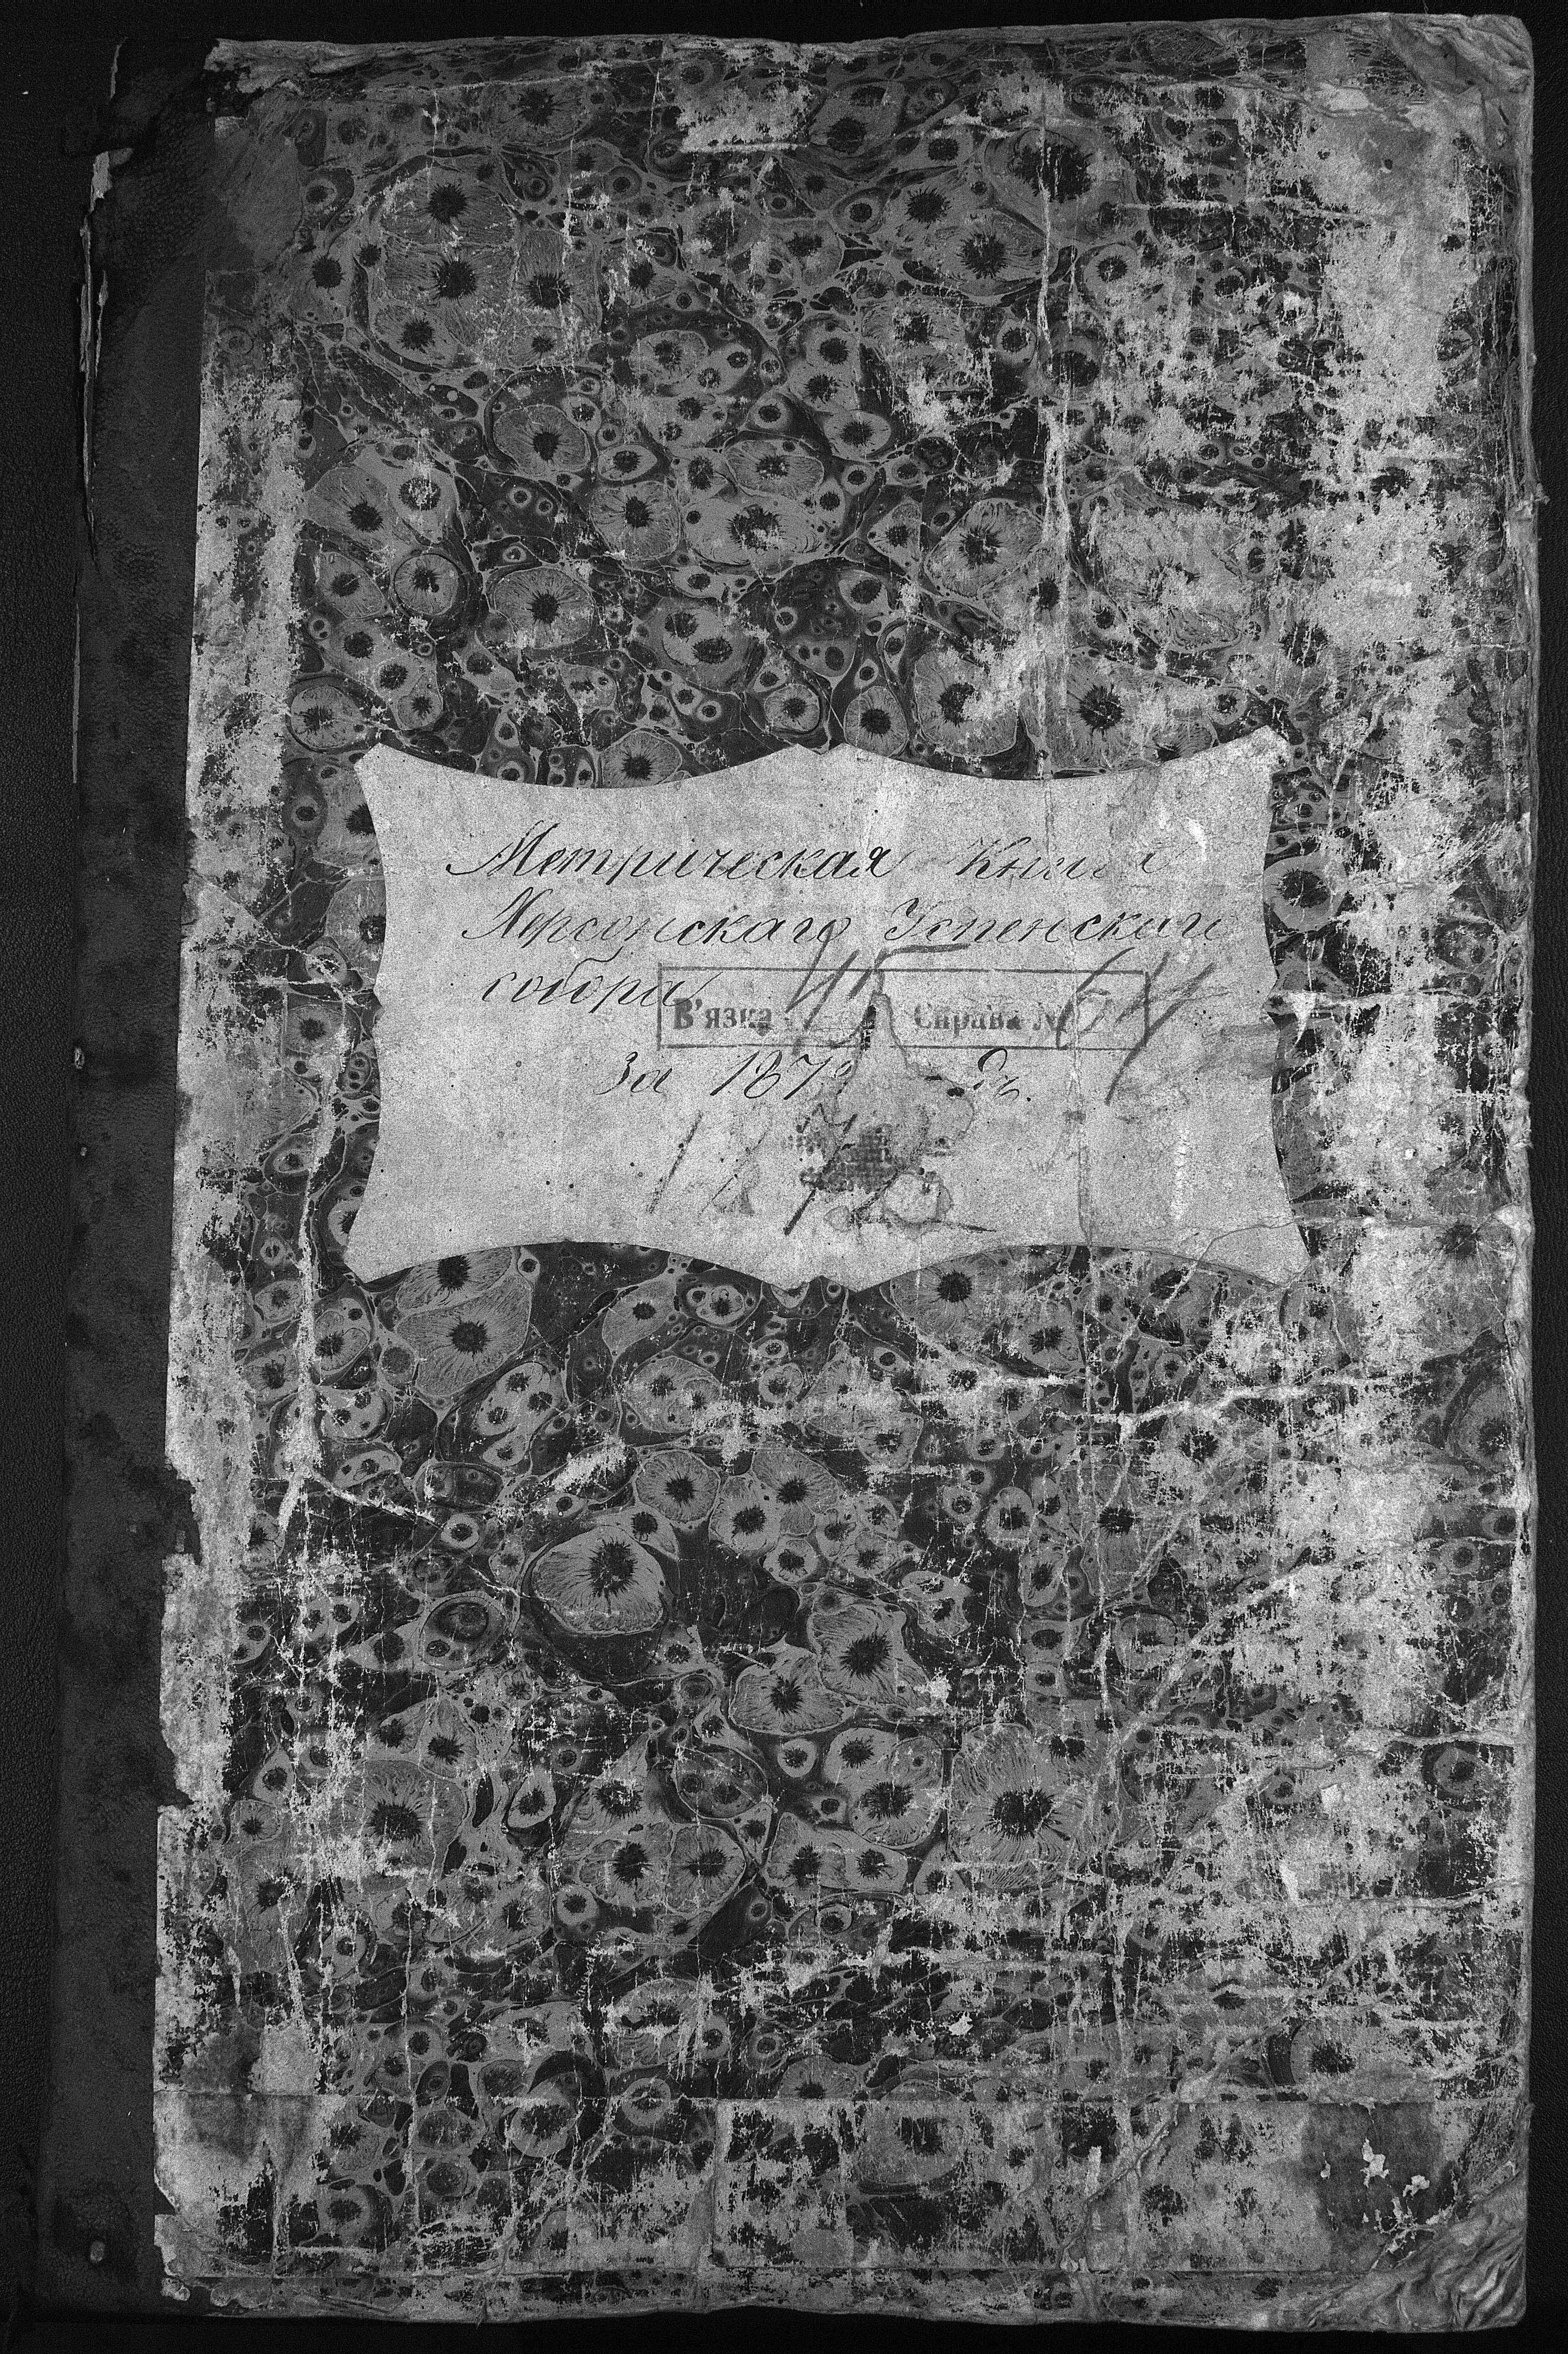 Метрическая Книга
Херсонскаго Успенскаго
собора
В'язка 45 Справа № 64
За 187